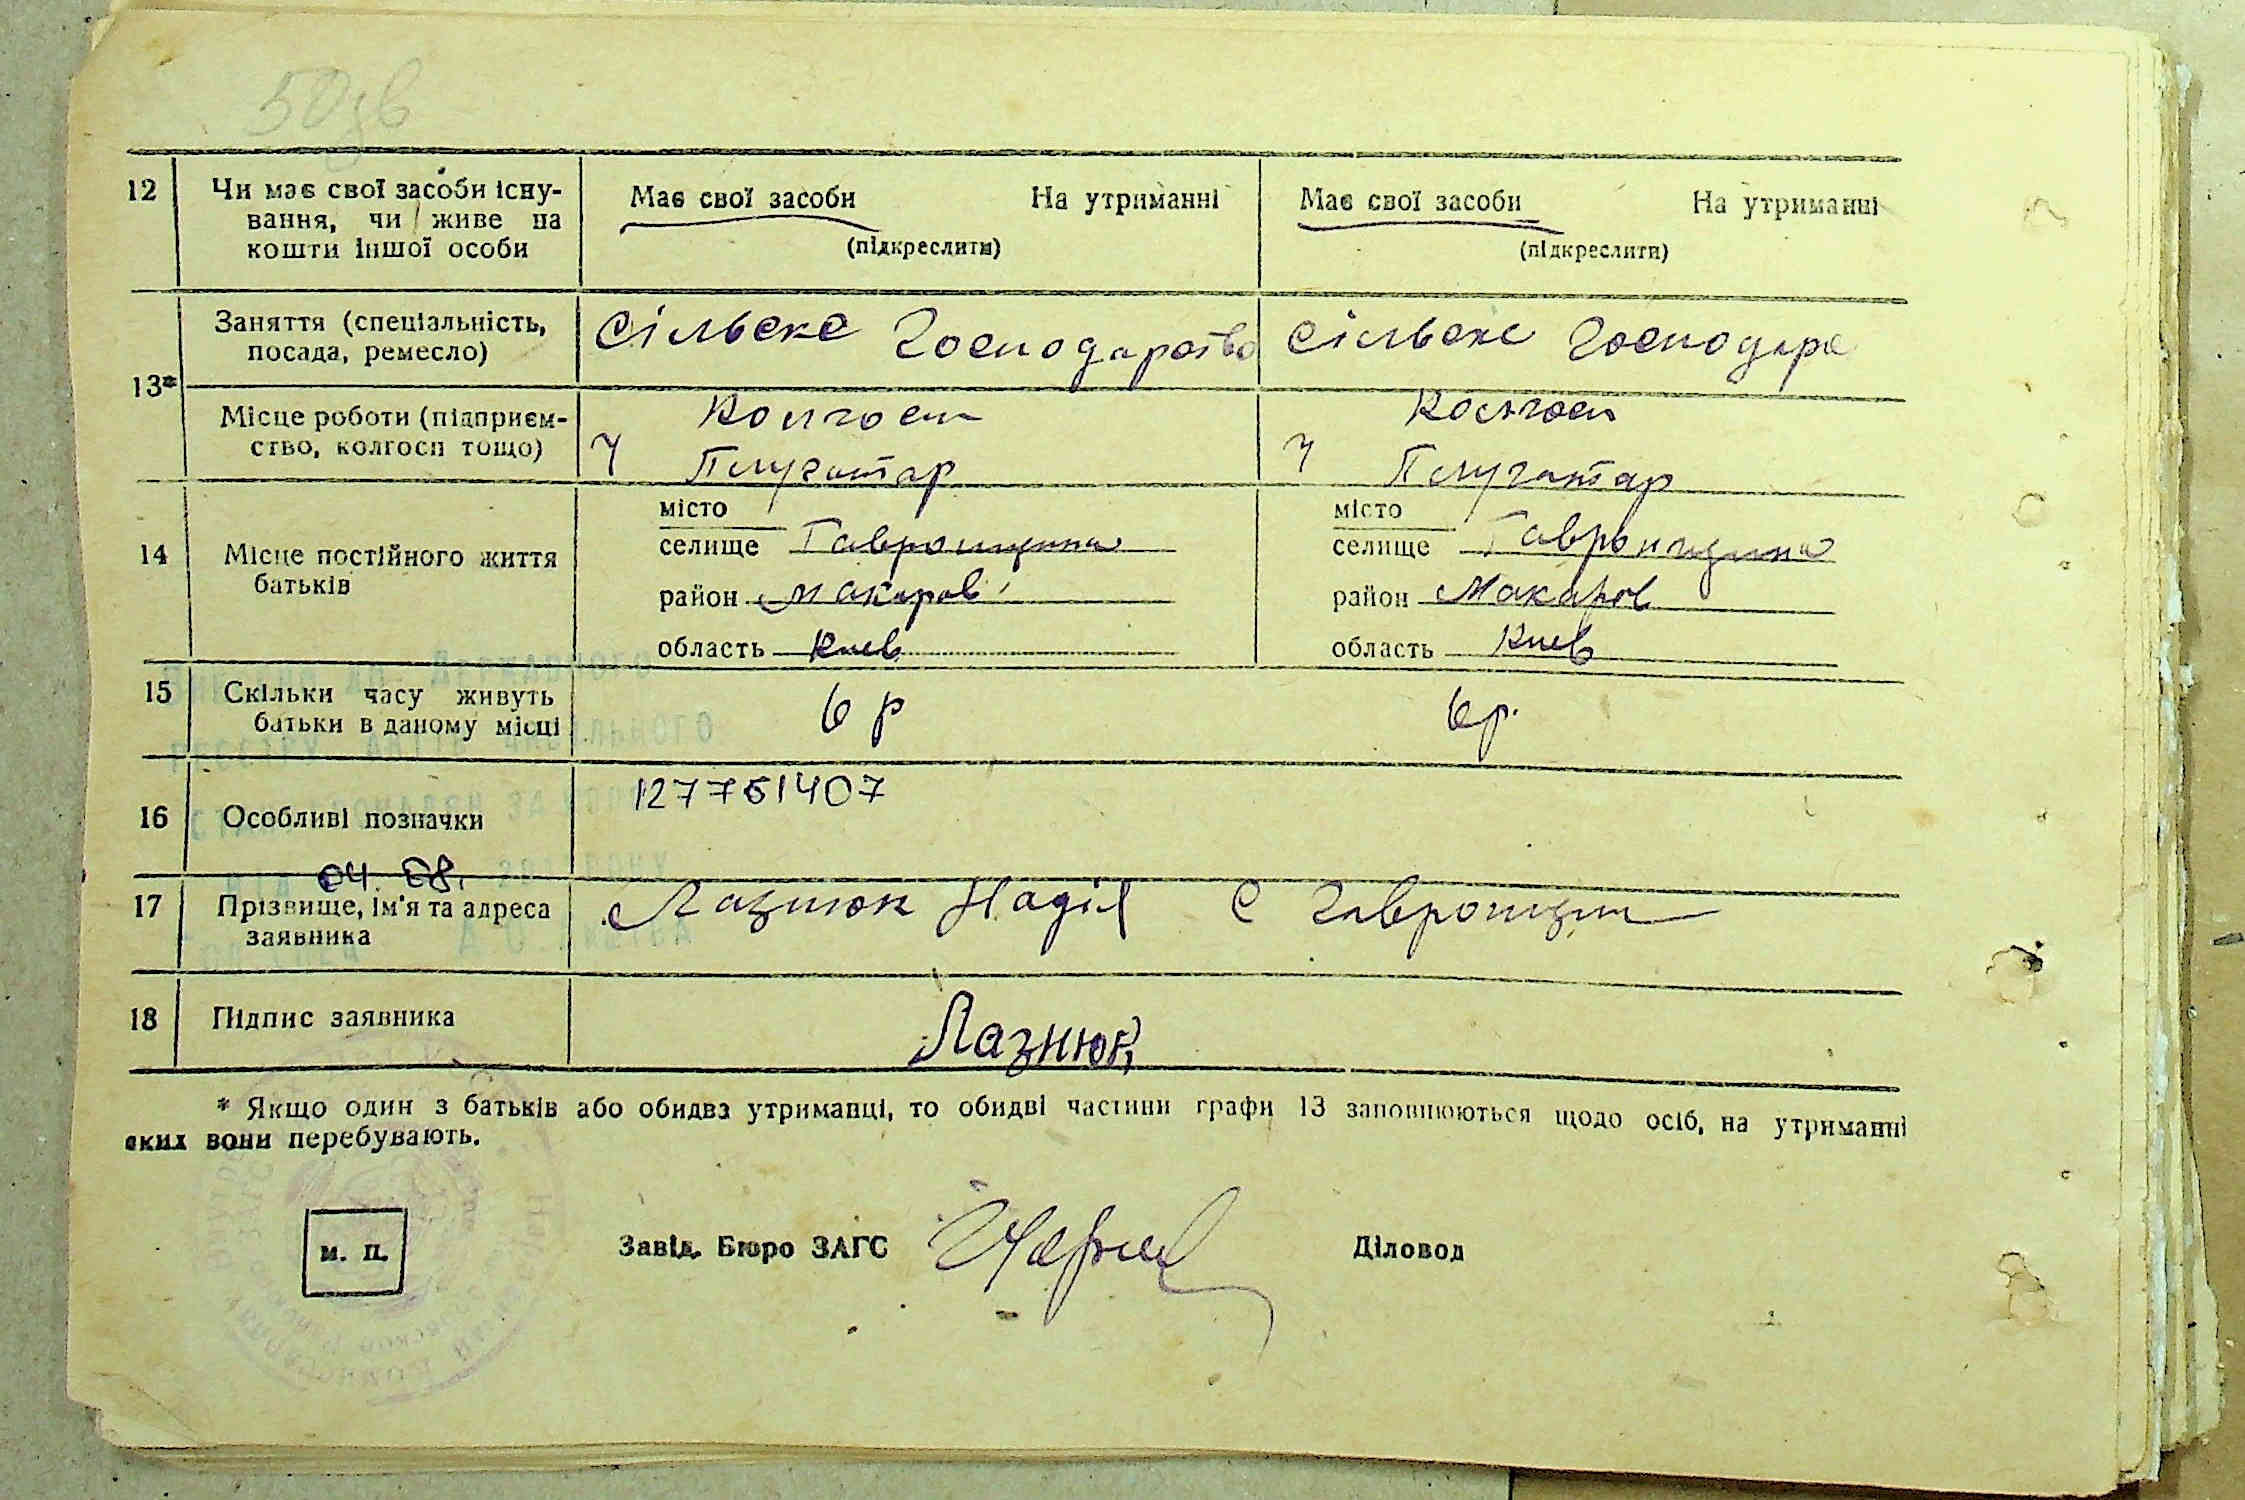 50зв
12 Чи має свої засоби існу-
вання, чи живе на
кошти іншої особи
Має свої засоби На утриманні
(підкреслити)
Має свої засоби На утриманні
(підкреслити)
13*
Заняття (спеціальність,
посада, ремесло)
Сільске Господарство
Сільске Господарс
Місце роботи (підприєм-
ство, колгосп тощо)
Колгосп
Плугатар
Колгосп
Плугатар
14 Місце постійного життя
батьків
місто
селище Гавронщина
район Макаров
область Киев
місто
селище Гавронщина
район Макаров
область Киев
15 Скільки часу живуть
батьки в даному місці
6 р
6р.
16 Особливі позначки
127761407
04. 08.
17 Прізвище, ім'я та адреса
заявника
Лазнюк Надія С Гавронщин
18 Підпис заявника
Лазнюк
* Якщо один з батьків або обидва утриманці, то обидві частини графи 13 заповнюються щодо осіб, на утриманні
яких вони перебувають.
м. п.
Завід. Бюро ЗАГС
Діловод